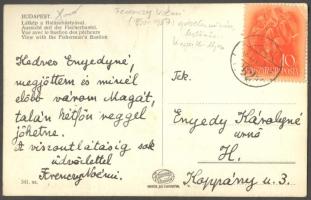 BUDAPEST.
Látkép a Halászbástyával.
Aussicht mit der Fischerbastei.
Vue avec le bastion des pêcheurs
View with the Fishermen's Bastion
Ferenczy Noémi
MAGYAR POSTA
10
Kedves Enyedyné,
megjöttem és minél
előbb várom Magát,
talán hétfőn reggel
jöhetne.
A viszontlátásig sok
üdvözlettel
Ferenczy Noémi
Tek.
Enyedy Károlyné
urnő
H.
Koppány u. 3.